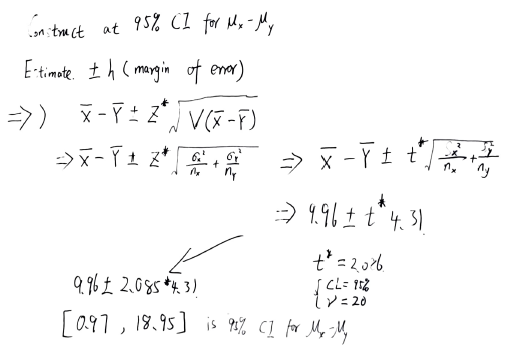 Construct at 95% CI for μx-μy
Estimate. ± h (margin of error)
=> ) X̄ - Ȳ ± Z* √V(X̄-Ȳ)
=> X̄ - Ȳ ± Z* √(σx²/nx + σy²/ny) => X̄ - Ȳ ± t* √(Sx²/nx + Sy²/ny)
=> 9.96 ± t* 4.31
t* = 2.086
{ CL = 95%
ν = 20
9.96 ± 2.085*4.31
[0.97 , 18.95] is 95% CI for μx-μy